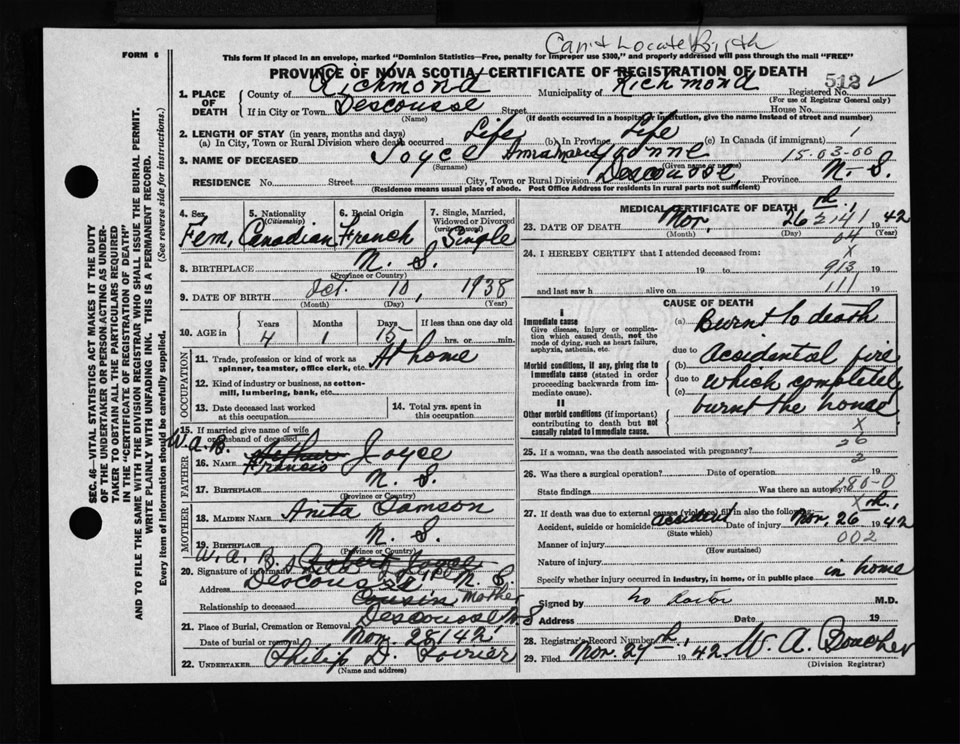 Can't Locate Birth
FORM 6
This form if placed in an envelope, marked "Dominion Statistics—Free, penalty for improper use $300," and properly addressed will pass through the mail "FREE"
PROVINCE OF NOVA SCOTIA CERTIFICATE OF REGISTRATION OF DEATH
512 ✓
1. PLACE OF DEATH
County of Richmond Municipality of Richmond Registered No.
(For use of Registrar General only)
If in City or Town Descousse Street House No.
(Name) (If death occurred in a hospital or institution, give the name instead of street and number)
2. LENGTH OF STAY (in years, months and days)
(a) In City, Town or Rural Division where death occurred Life (b) In Province Life (c) In Canada (if immigrant) 1
15-03-00
3. NAME OF DECEASED Joyce Yvonne
(Surname) (Given name or names)
RESIDENCE No. Street City, Town or Rural Division Descousse, Province N.S.
(Residence means usual place of abode. Post Office Address for residents in rural parts not sufficient)
SEC. 46—VITAL STATISTICS ACT MAKES IT THE DUTY OF THE UNDERTAKER OR PERSON ACTING AS UNDERTAKER TO OBTAIN ALL THE PARTICULARS REQUIRED IN THE "CERTIFICATE OF REGISTRATION OF DEATH" AND TO FILE THE SAME WITH THE DIVISION REGISTRAR WHO SHALL ISSUE THE BURIAL PERMIT.
WRITE PLAINLY WITH UNFADING INK. THIS IS A PERMANENT RECORD.
Every item of information should be carefully supplied. (See reverse side for instructions.)
4. Sex Fem.
5. Nationality (Citizenship) Canadian
6. Racial Origin French
7. Single, Married, Widowed or Divorced (write the word) Single
8. BIRTHPLACE N.S.
(Province or Country)
9. DATE OF BIRTH Oct. 10, 1938
(Month) (Day) (Year)
10. AGE in Years 4 Months 1 Days 15 If less than one day old hrs. or min.
OCCUPATION
11. Trade, profession or kind of work as spinner, teamster, office clerk, etc. At home
12. Kind of industry or business, as cotton-mill, lumbering, bank, etc.
13. Date deceased last worked at this occupation
14. Total yrs. spent in this occupation
15. If married give name of wife or husband of deceased
W.A.B.
FATHER
16. NAME Arthur Francis Joyce
17. BIRTHPLACE N.S.
(Province or Country)
MOTHER
18. MAIDEN NAME Anita Samson
19. BIRTHPLACE N.S.
(Province or Country)
W.A.B.
20. Signature of informant
Address Descousse N.S.
Relationship to deceased Cousin Mother
21. Place of Burial, Cremation or Removal Descousse N.S
Date of burial or removal Nov. 28/42
22. UNDERTAKER Philip D. Poirier
(Name and address)
MEDICAL CERTIFICATE OF DEATH
23. DATE OF DEATH Nov. 26 th, 1942
2141
(Month) (Day) (Year)
64
24. I HEREBY CERTIFY that I attended deceased from: X
19 to 913 19
and last saw h alive on 111 19
CAUSE OF DEATH
I
Immediate cause
Give disease, injury or complication which caused death, not the mode of dying, such as heart failure, asphyxia, asthenia, etc.
(a) Burnt to death
due to
Morbid conditions, if any, giving rise to immediate cause (stated in order proceeding backwards from immediate cause).
(b) Accidental fire
due to which completely
(c) burnt the house
II
Other morbid conditions (if important) contributing to death but not causally related to immediate cause.
X
26
25. If a woman, was the death associated with pregnancy? 2
26. Was there a surgical operation? Date of operation 19
State findings Was there an autopsy?
180-0
X
27. If death was due to external causes (violence) fill in also the following:
Accident, suicide or homicide accident Date of injury Nov. 26 th, 1942
(State which)
002
Manner of injury
(How sustained)
Nature of injury
Specify whether injury occurred in industry, in home, or in public place in home
Signed by no Doctor M.D.
Address Date 19
28. Registrar's Record Number
29. Filed Nov. 27 th, 1942. W. A. Boucher
(Division Registrar)